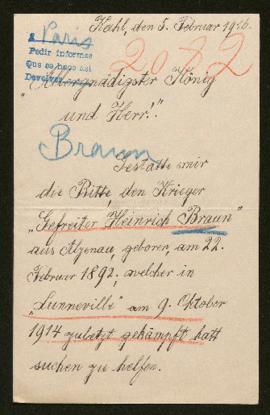 Kahl, den 5. Februar 1916.
A Paris
Pedir informes
Que se hace así
Devolver
2082
„Allergnädigster König
und Herr!"
Braun
Gestatte mir
die Bitte, den Krieger
„Gefreiter Heinrich Braun"
aus Alzenau, geboren, am 22.
Februar 1892, welcher in
„Lunneville" am 9. Oktober
1914 zuletzt gekämpft hatt
suchen zu helfen.